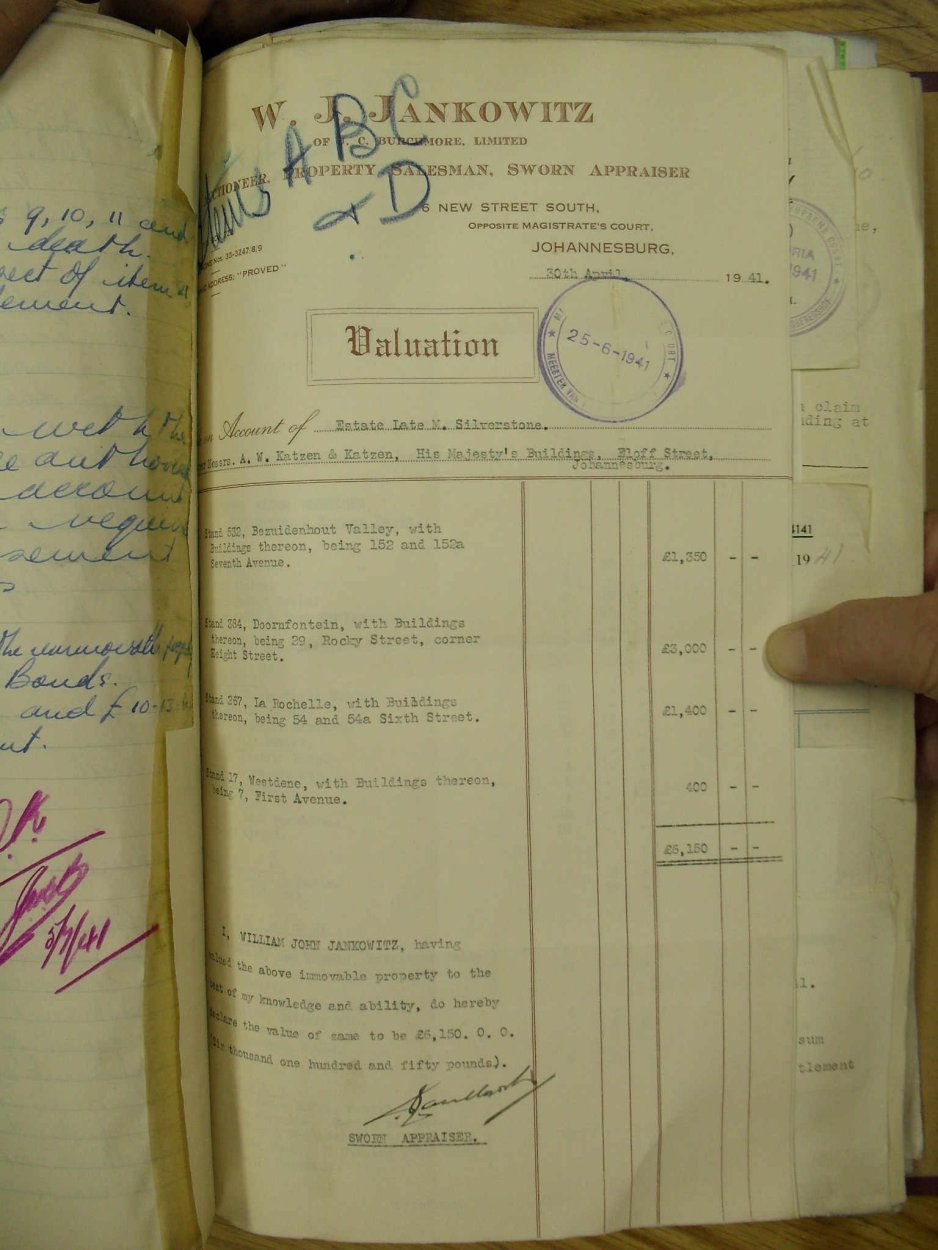 9, 10, 11 and
death.
ect of item
ement.
with the
account
Bonds.
and £ 10-13
5/7/41
W. J. JANKOWITZ
OF J. C. BURCHMORE, LIMITED
PROPERTY SALESMAN, SWORN APPRAISER
Items A B C
+ D
6 NEW STREET SOUTH,
OPPOSITE MAGISTRATE'S COURT,
JOHANNESBURG.
33-3247/8/9
ADDRESS: "PROVED"
30th April, 1941.
Valuation
25-6-1941
MEESTER VAN
Account of Estate Late M. Silverstone.
Messrs. A. W. Katzen & Katzen, His Majesty's Buildings, Eloff Street,
Johannesburg.
Stand 532, Bezuidenhout Valley, with
Buildings thereon, being 152 and 152a
Seventh Avenue. £1,350 - -
Stand 384, Doornfontein, with Buildings
thereon, being 29, Rocky Street, corner
Height Street. £3,000 - -
Stand 267, La Rochelle, with Buildings
thereon, being 54 and 54a Sixth Street. £1,400 - -
Stand 17, Westdene, with Buildings thereon,
being 7, First Avenue. 400 - -
£6,150 - -
I, WILLIAM JOHN JANKOWITZ, having
valued the above immovable property to the
best of my knowledge and ability, do hereby
declare the value of same to be £6,150. 0. 0.
(Six thousand one hundred and fifty pounds).
SWORN APPRAISER.
RIA
1941
claim
ding at
4141
19 41
sum
tlement